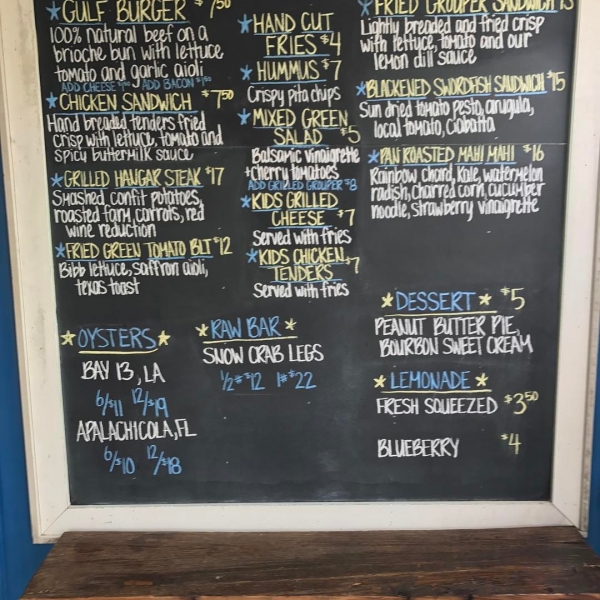 GULF BURGER $7.50
100% natural beef on a
brioche bun with lettuce
tomato and garlic aioli
ADD CHEESE ADD BACON
CHICKEN SANDWICH $7.50
Hand breaded tenders fried
crisp with lettuce, tomato and
spicy buttermilk sauce
GRILLED HANGAR STEAK $17
Smashed confit potatoes,
roasted farm carrots, red
wine reduction
FRIED GREEN TOMATO BLT $12
Bibb lettuce, saffron aioli,
texas toast
HAND CUT
FRIES $4
HUMMUS $7
Crispy pita chips
MIXED GREEN
SALAD $5
Balsamic vinaigrette
+cherry tomatoes
ADD GRILLED GROUPER $8
KIDS GRILLED
CHEESE $7
Served with fries
KIDS CHICKEN
TENDERS $7
Served with fries
FRIED GROUPER SANDWICH
Lightly breaded and fried crisp
with lettuce, tomato and our
lemon dill sauce
BLACKENED SWORDFISH SANDWICH $15
Sun dried tomato pesto, arugula,
local tomato, ciabatta
PAN ROASTED MAHI MAHI $16
Rainbow chard, kale, watermelon
radish, charred corn, cucumber
noodle, strawberry vinaigrette
OYSTERS
BAY 13, LA
6/$11 12/$19
APALACHICOLA, FL
6/$10 12/$18
RAW BAR
SNOW CRAB LEGS
1/2# $12 1# $22
DESSERT $5
PEANUT BUTTER PIE,
BOURBON SWEET CREAM
LEMONADE
FRESH SQUEEZED $3.50
BLUEBERRY $4